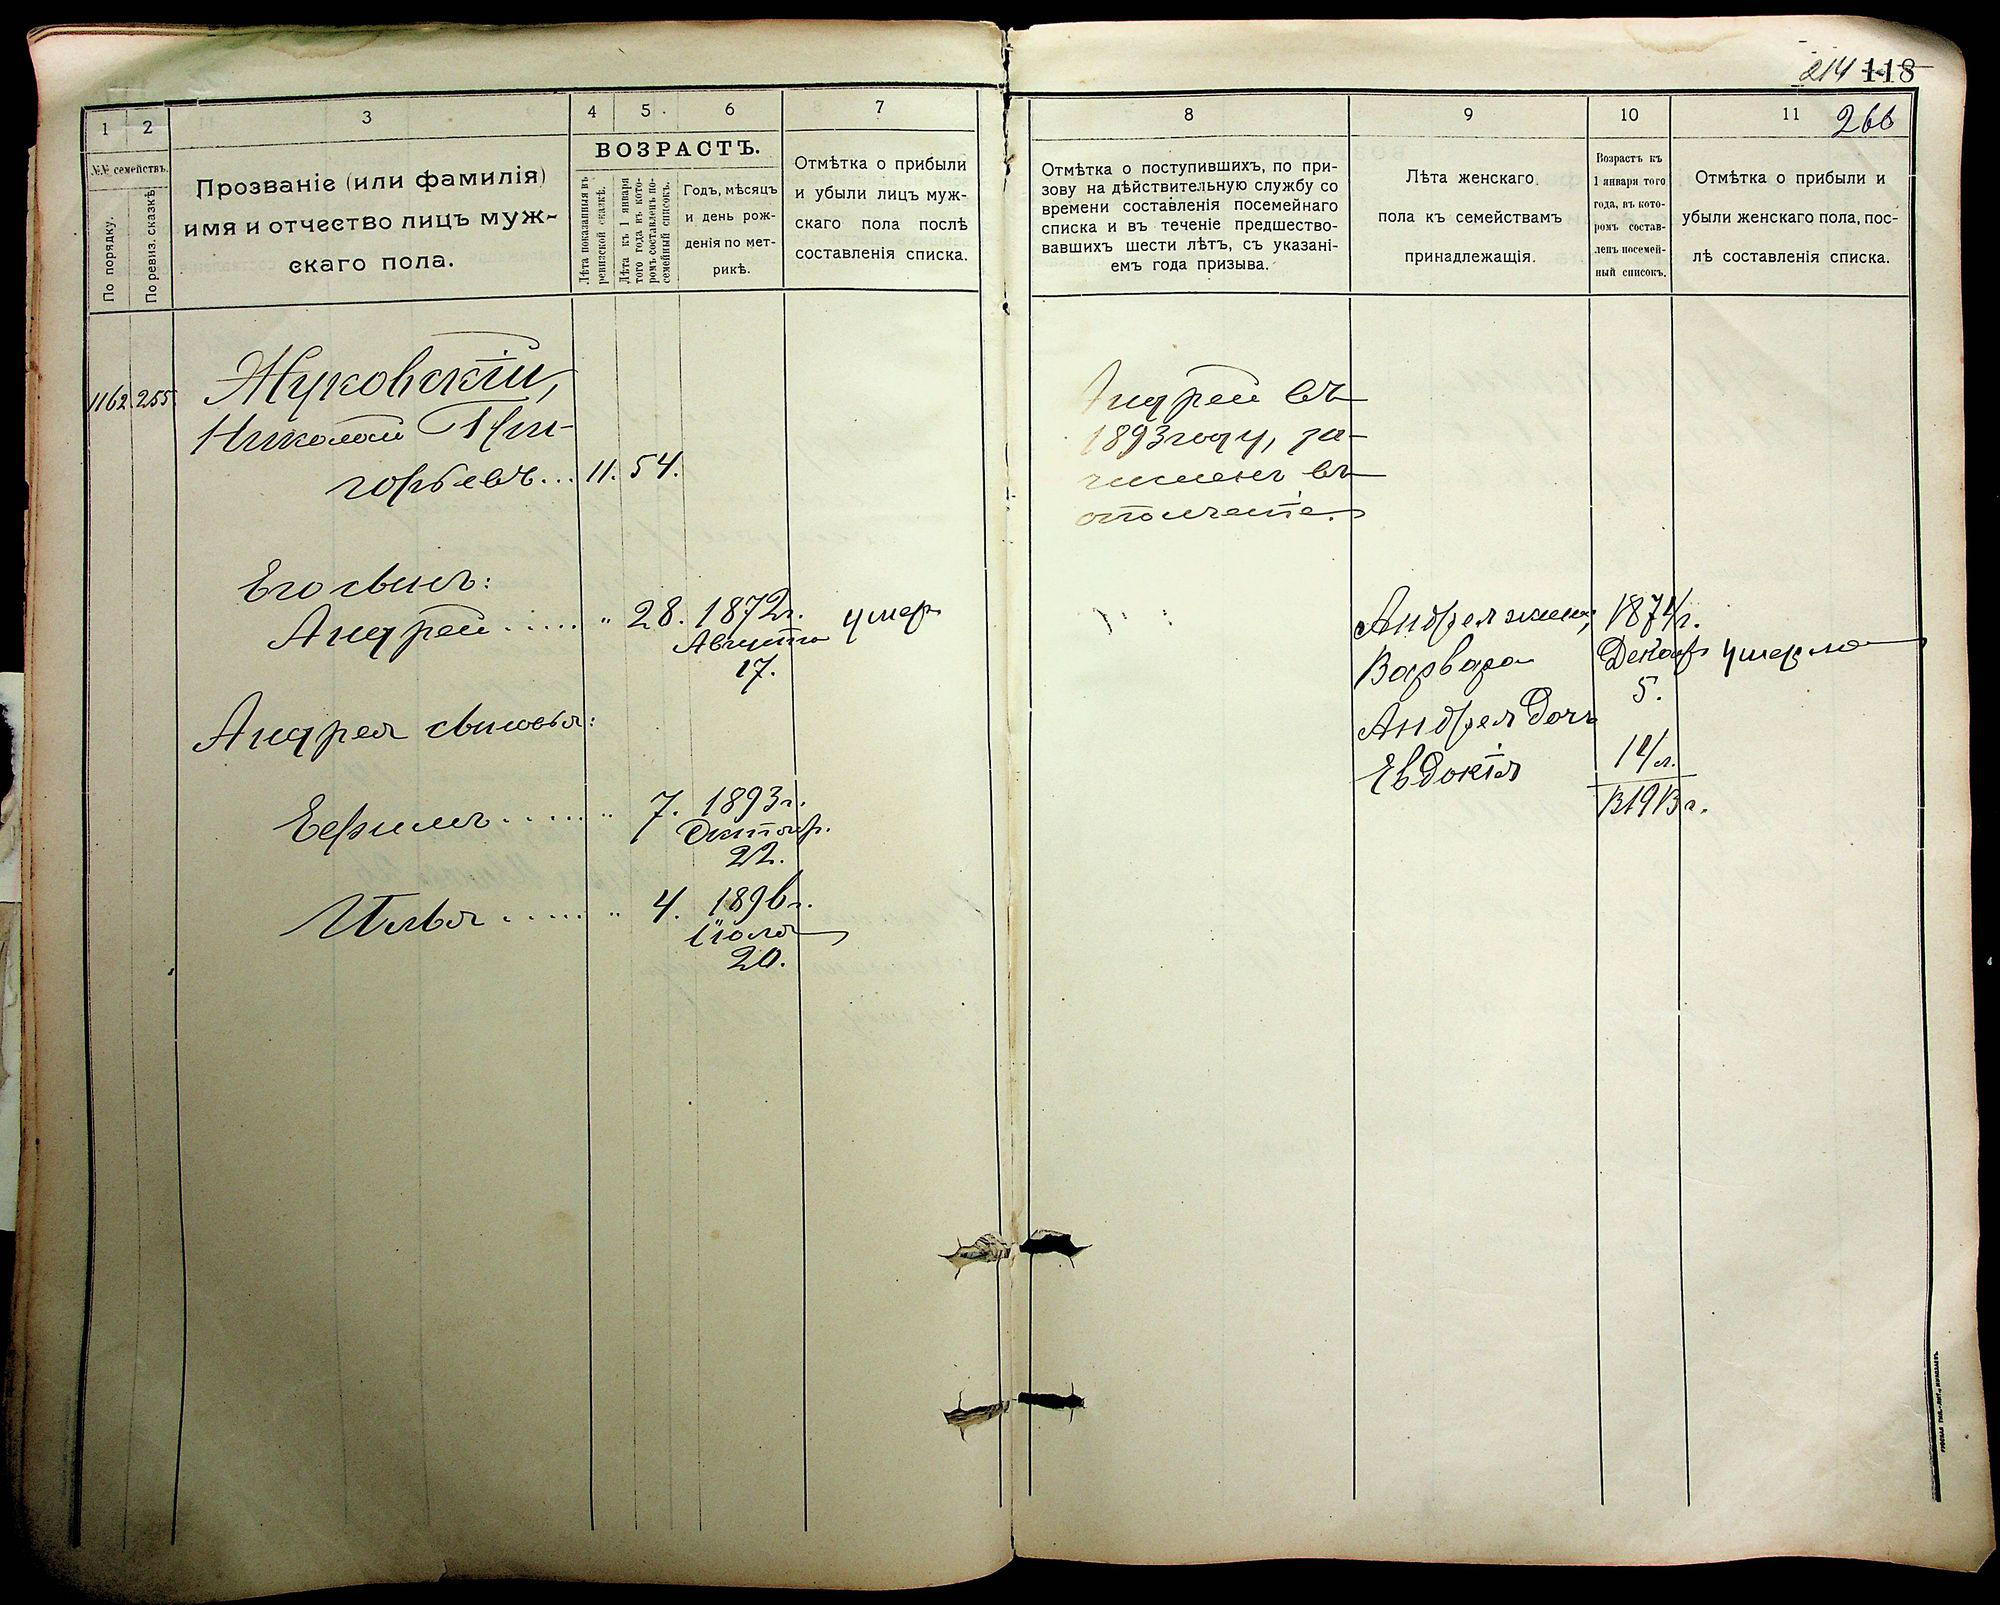 214 118
266
1 2 3 4 5 6 7
№№ семействъ.
По порядку.
По ревиз. сказкѣ.
Прозваніе (или фамилія)
имя и отчество лицъ муж-
скаго пола.
ВОЗРАСТЪ.
Лѣта показанныя въ
ревизской сказкѣ.
Лѣта къ 1 января
того года въ кото-
ромъ составленъ по-
семейный списокъ.
Годъ, мѣсяцъ
и день рож-
денія по мет-
рикѣ.
Отмѣтка о прибыли
и убыли лицъ муж-
скаго пола послѣ
составленія списка.
1162. 255.
Жуковскій,
Николай Гри-
горьевъ... 11. 54.
Его сынъ:
Андрей ..... " 28. 1872 г. умер
Августа
17.
Андрея сыновья:
Ефимъ ...... " 7. 1893 г.
Октябр.
22.
Илья ...... " 4. 1896 г.
Іюля
20.
8 9 10 11
Отмѣтка о поступившихъ, по при-
зову на дѣйствительную службу со
времени составленія посемейнаго
списка и въ теченіе предшество-
вавшихъ шести лѣтъ, съ указані-
емъ года призыва.
Лѣта женскаго
пола къ семействамъ
принадлежащія.
Возрастъ къ
1 января того
года, въ кото-
ромъ состав-
ленъ посемей-
ный списокъ.
Отмѣтка о прибыли и
убыли женскаго пола, пос-
лѣ составленія списка.
Андрей въ
1893 году, за-
численъ въ
ополченіе.
Андрея жена, 1874 г.
Варвара Декабр умерла
5.
Андрея дочь
Евдокія 14 л.
В 1913 г.